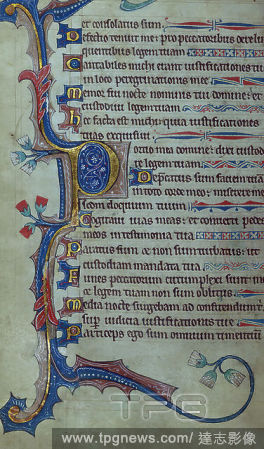 et consolatus sum.
Defectio tenuit me: pro peccatoribus derelin
quentibus legem tuam
Cantabiles michi erant iustificationes tue
in loco peregrinationis mee
Memor fui nocte nominis tui domine: et
custodiui legem tuam
Hec facta est michi: quia iustificationes
tuas exquisiui
Portio mea domine: dixi custodi
re legem tuam
Deprecatus sum faciem tuam
in toto corde meo: miserere mei
secundum eloquium tuum
Cogitaui uias meas: et conuerti pedes
meos in testimonia tua
Paratus sum et non sum turbatus: ut
custodiam mandata tua
Funes peccatorum circumplexi sunt me
et legem tuam non sum oblitus
Media nocte surgebam ad confitendum tibi
super iudicia iustificationis tue
Particeps ego sum omnium timentium
TPG
www.tpgnews.com / 達志影像